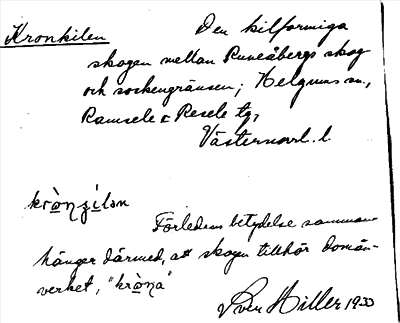 Kronkilen
Den kilformiga
skogen mellan Runeåbergs skog
och sockengränsen; Helgums sn.,
Ramsele o Resele tg,
Västernorrl. l.
krò̱nʒi̱lən
Förledens betydelse samman-
hänger därmed, att skogen tillhör domän-
verket, "krò̱na"
Sven Hiller 1933